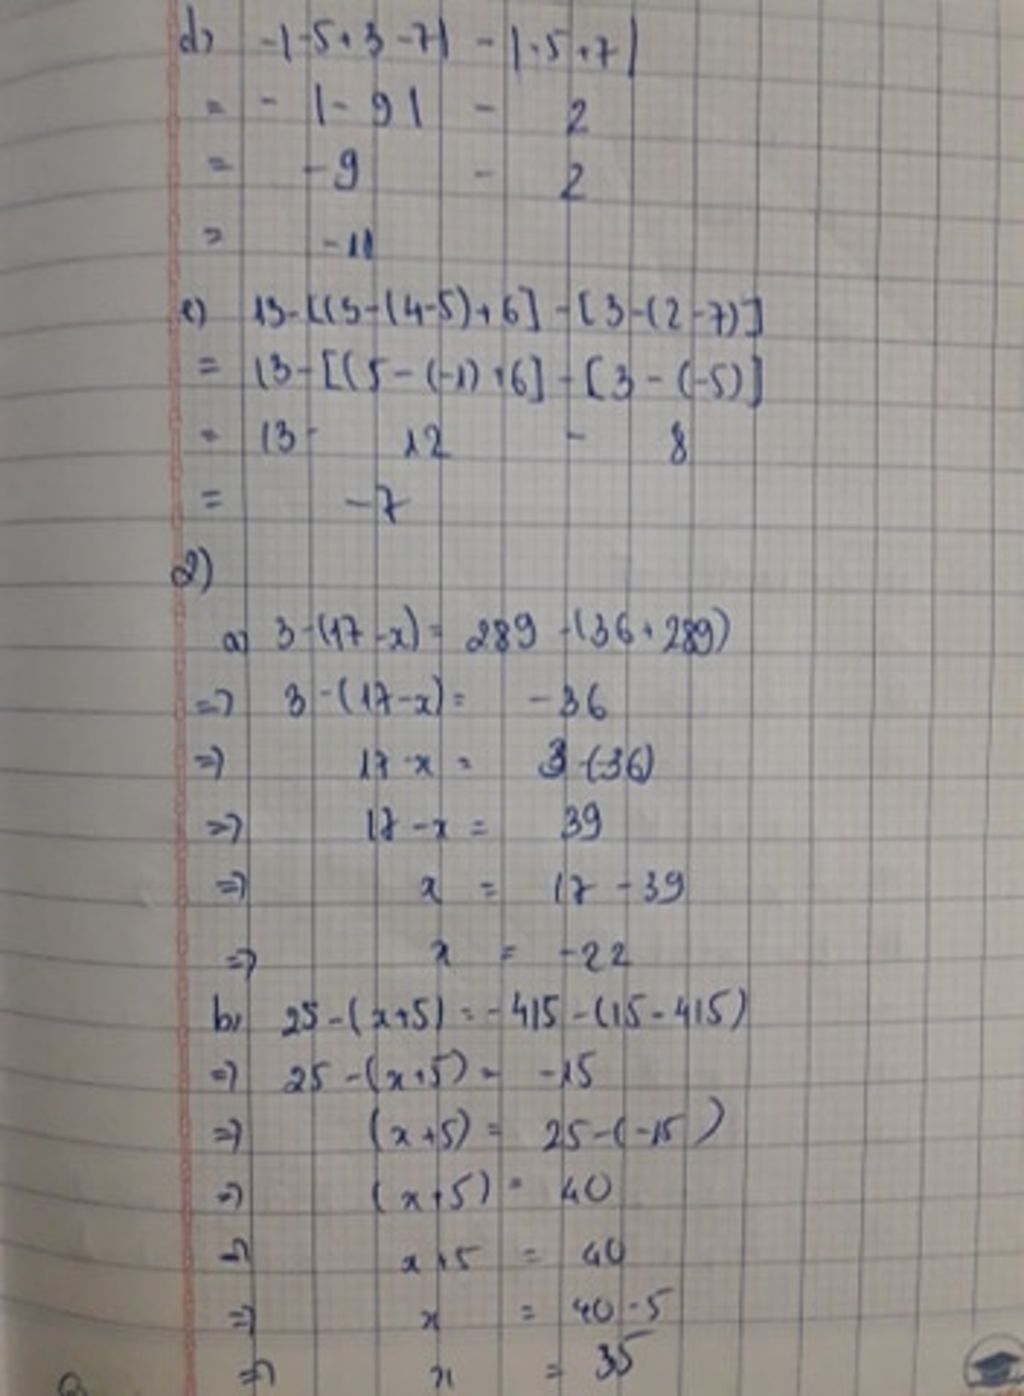 d) -|-5+3-7| - |-5+7|
= - |-9| - 2
= -9 - 2
= -11
e) 13-[(5-(4-5)+6] -[3-(2-7)]
= 13-[(5-(-1)+6] -[3-(-5)]
= 13- 12 - 8
= -7
2)
a) 3-(17-x)= 289 -(36+289)
=> 3-(17-x)= -36
=> 17-x = 3-(36)
=> 17-x = 39
=> x = 17 -39
=> x = -22
b) 25-(x+5) = -415-(15-415)
=> 25-(x+5) = -15
=> (x+5) = 25-(-15)
=> (x+5) = 40
=> x+5 = 40
=> x = 40-5
=> x = 35